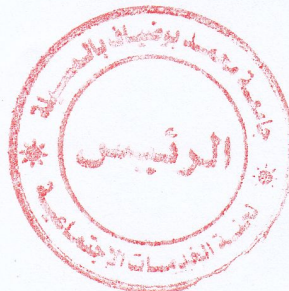 جامعة محمد بوضياف بالمسيلة
الرئيس
لجنة الخدمات الاجتماعية